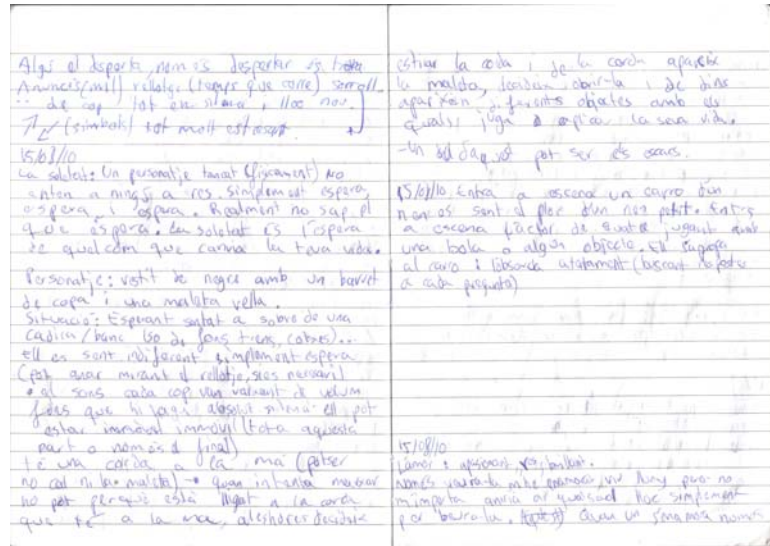 Algú el desperta, nomes despertar es troba
Anuncis(mil) rellotge (temps que corre) soroll
de cop tot en silenci i lloc nou.
(símbols) tot molt estrany.
15/03/10
La soletat: Un personatje tancat (físicament) No
enten a ningú a res. simplement espera,
espera i espera. Realment no sap el
que espera. La soletat és l'espera
de qualcom que canvia la teva vida.
Personatje: vestit de negre amb un barret
de copa i una maleta vella.
Situació: Esperant sentat a sobre de una
cadira/banc (so de fons trens, cotxes)...
ell es sent indiferent simplement espera
(pot anar mirant el rellotje, si es nerviós)
• el sons cada cop van variant de volum
fins que hi hagi absolut silenci ell pot
estar immòvil (tota aquesta
part o només al final)
té una corda a la mà (potser
no cal ni la maleta) → quan intenta marxar
no pot perquè està lligat a la corda
que té a la mà, aleshores decideix
estirar la corda i de la corda apareix
la maleta, decideix obrir-la i de dins
apareixen diferents objectes amb els
quals juga a explicar la seva vida.
- Un pot ser els ossos.
15/03/10. Entra a escena un carro d'un
nen es sent el plor d'un nen petit. Entra
a escena l'actor de jugant amb
una bola o algun objecte. Ell s'apropa
al carro i l'observa atentament (buscant respostes
a cada pregunta)
15/03/10
L'amor: apasionant, brillant.
Només veure-la m'he enamorat, viu lluny però no
m'importa aniria on qualsevol lloc simplement
per veure-la. Quan un s'enamora només